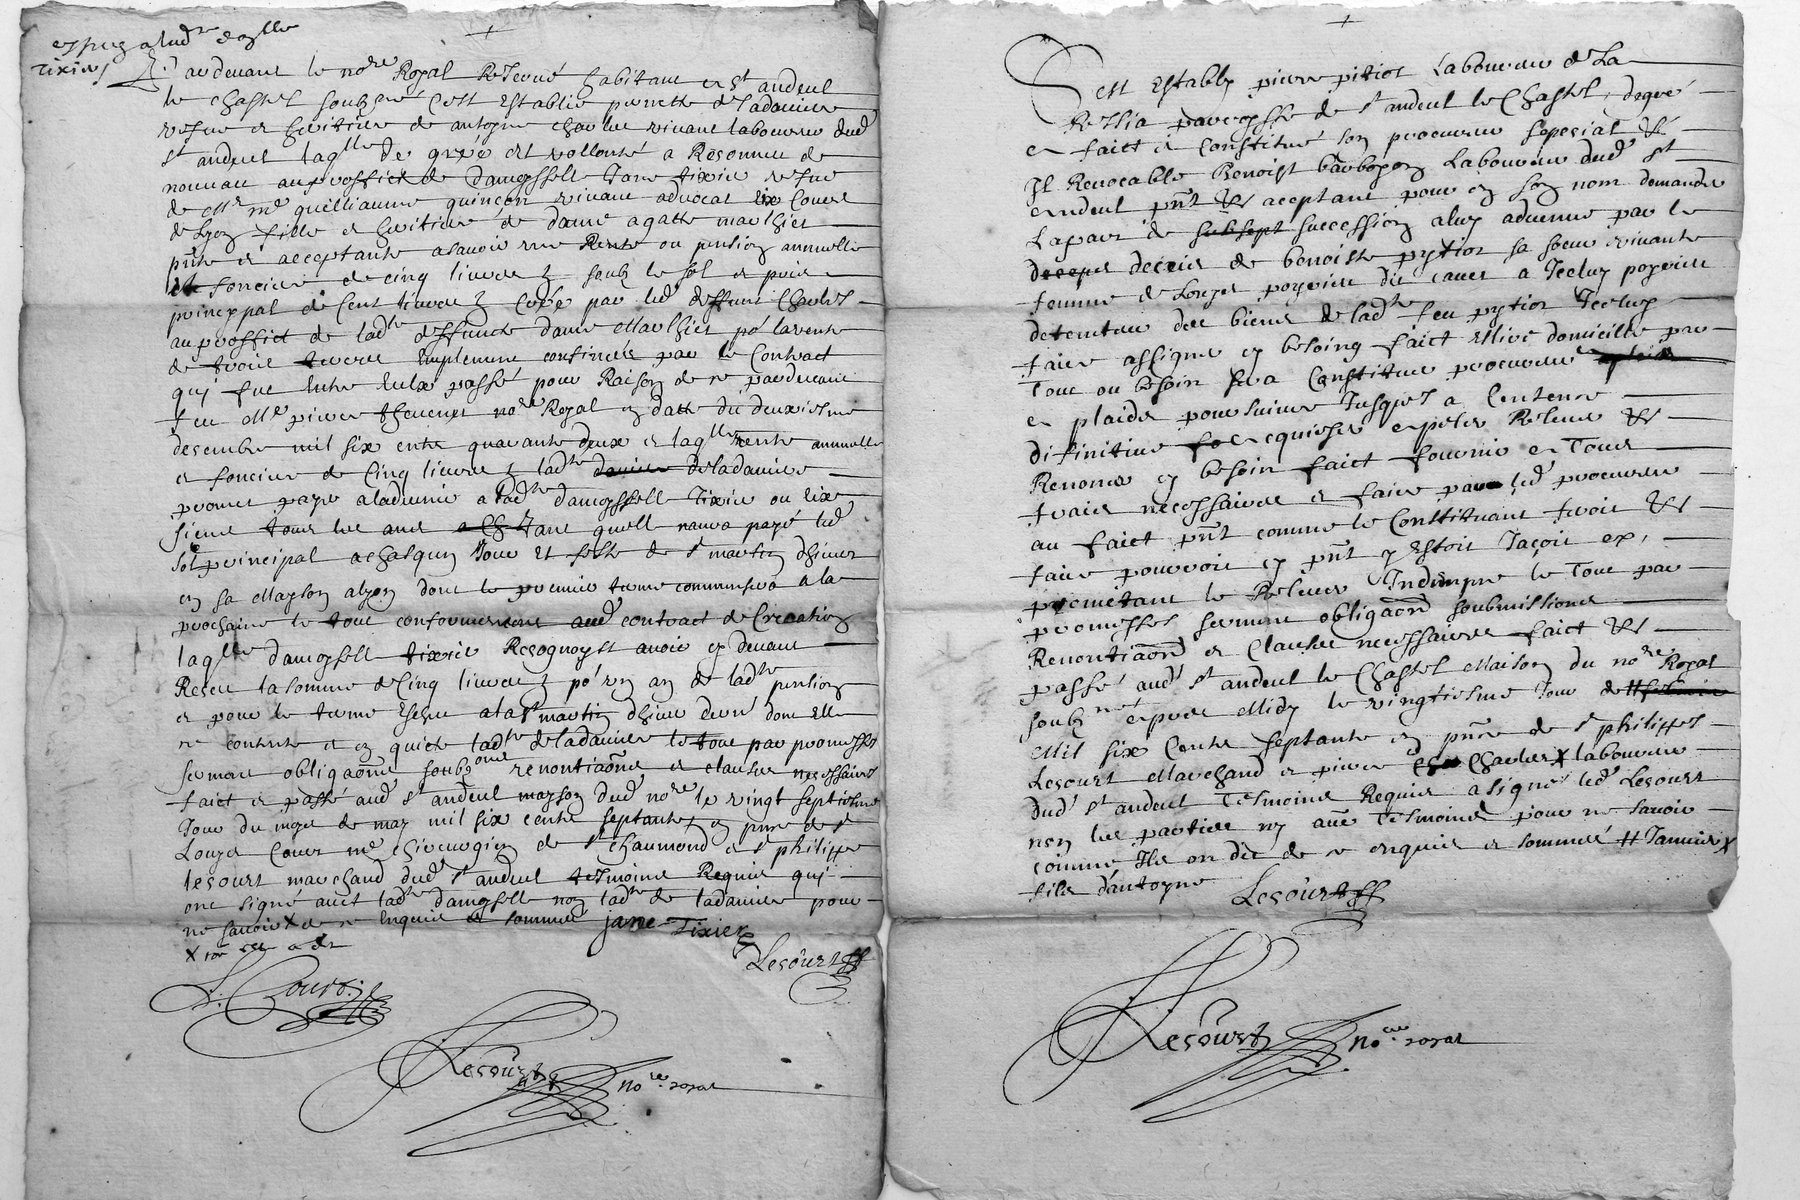 a lad damoyselle
Tixier
Pardevant le no.re Royal Reservé habitant a St andeol
le Chastel soubz.né C'est Establie pernette de ladaniere
vefve et heritiere de antoyne charles vivant laboureur dud
St andeol laqlle de gré et vollonté a Reconneu de
nouveau au proffict de damoyselle Jane tixier vefve
de Mre guilliaume quinson vivant advocat Coure
de Lyon fille et heritiere de dame agatte mathier
pnte et acceptante a savoir une Rente ou pension annuelle
et fonciere de cinq livres soubz le sol et pris
principal de Cent livres Créé par led deffunt Charles
au proffict de ladte deffuncte dame Mathier po.r la vente
de trois implement confinées par le Contract
qui fut Entre Eulx passé pour Raison de ce pardevant
feu Mre pierre thevenet no.re Royal en datte du deuxiesme
decembre mil six cents quarante deux et laqlle Rente annuelle
et fonciere de Cinq livres ladte de ladaniere
promet payer a ladvenir a ladte damoyselle Tixier ou aux
siens tous les ans Tant quelle naura payé led
sol principal a chasqun Jour Et feste de St martin dhiver
en sa Mayson a lyon dont le premier terme commensera a la
prochaine le tout conformement aud contract de Creation
laqlle damoyselle tixier Recognoyst avoir cy devant
Receu la somme de Cinq livres po.r un an de ladte pension
et pour le terme Escheu a la St martin dhiver dernr dont Elle
se contente et en quicte ladte de ladaniere le tout par promesses
serment obligaone soubzone renontiaone et clauses necessaires
faict et passé aud St andeol mayson dud no.re le vingt septiesme
Jour du moys de may mil six cents septante, en pnce de Sr
Louys Court me chirurgien de St chaumond et Sr philippe
lecourt marchand dud St andeol tesmoins Requis qui
ont signé avec ladte damoyselle non ladte de ladaniere pour
ne savoir X de ce Enquise et sommée jane Tixier
L. Court
Lecourt
Lecourt no.re royal
C'est Estably pierre pitiot Laboureur de La
Rellia parroysse de St andeol le Chastel, de gré
et faict et Constitué son procureur sepecial &c
Il Revocable Benoist barbogon Laboureur dud St
andeol pnt &c aceptant pour en son nom demander
La part de succession a luy advenue par le
deceps deceis de benoiste pytiot sa soeur vivante
femme de Louys poyrieu dit a Iceluy poyrieu
detenteur des biens de ladte feu pytiot Iceluy
faire assigner en besoing faict Ellire domicille par
Tout ou besoin sera Constituer procureur
et plaids poursuivre Jusques a Centence
difinitive Requiser apeler Relever &c
Renoncer en besoin faict fournir et Tous
fraies necessaires et faire par led procureur
au faict pnt comme le Constituant feroit &c
faire pourroit en pnt y Estoit Jaçoit ex,
prometant le Relever Indempne le Tout par
promesses serment obligaon soubmissions
Renontiaon et Clauses necessaires faict &c
passé aud St andeol le Chastel Maison du no.re Royal
soubz.né apres Midy le vingtiesme Jour de
Mil six Cents septante en pnce de Sr philippes
Lecourt Marchand et pierre Charles X laboureur
dud St andeol Tesmoins Requis a signé led Lecourt
non les parties ny autre Tesmoins pour ne savoir
comme Ils on dit de ce enquis et sommés # Janvier X
fils d'antoyne
Lecourt
Lecourt no.re royal